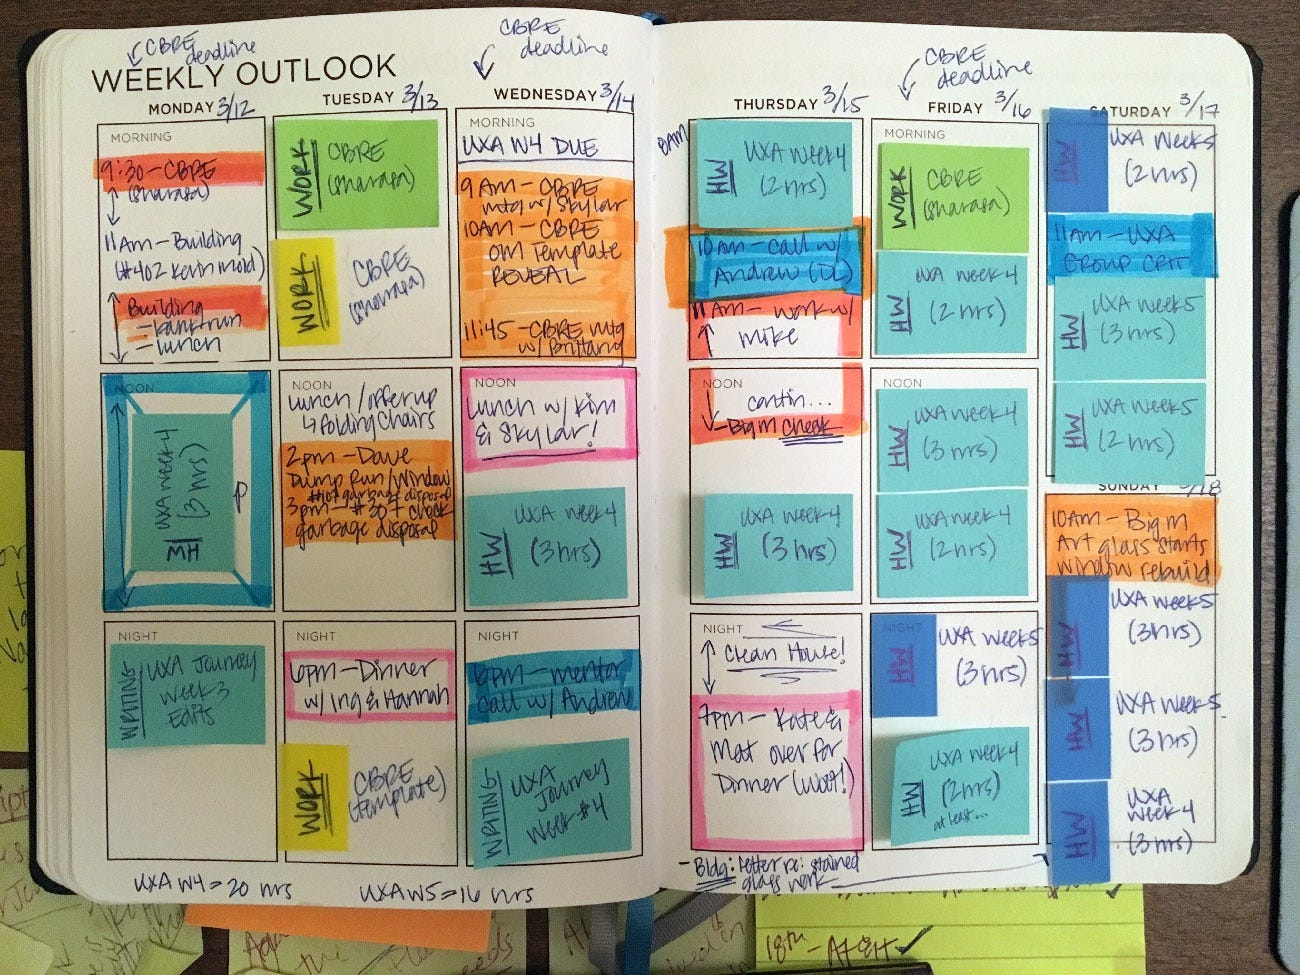 CBRE
deadline
CBRE
deadline
CBRE
deadline
WEEKLY OUTLOOK
MONDAY 3/12
MORNING
9:30-CBRE
11AM-Building
(#402 Kevin mold)
Building
- bank run
- lunch
NOON
HW
UXA Week 4
(3 hrs)
NIGHT
WRITING
UXA Journey
Week 3
Edits
TUESDAY 3/13
WORK
CBRE
WORK
CBRE
NOON
Lunch/offer up
↳ Folding Chairs
2pm-Dave
Dump Run/Window
#107 garbage disposal
3pm-#30+ check
garbage disposal
NIGHT
6pm-Dinner
w/ Ing & Hannah
WORK
CBRE
(template)
WEDNESDAY 3/14
MORNING
UXA W4 DUE
9AM-CBRE
mtg w/ Skylar
10AM-CBRE
OM Template
REVEAL
11:45-CBRE mtg
w/ Brittany
NOON
Lunch w/ Kim
& Skylar!
HW
UXA Week 4
(3 hrs)
NIGHT
6pm-mentor
call w/ Andrew
WRITING
UXA
Journey
Week #4
UXA W4=20 hrs
UXA W5=16 hrs
THURSDAY 3/15
8AM
HW
UXA Week 4
(2 hrs)
10am-call w/
Andrew (DL)
11am-work w/
mike
NOON
contin...
Big M check
HW
UXA Week 4
(3 hrs)
NIGHT
Clean House!
7pm-Kate &
Mat over for
Dinner (woot!)
- Bldg: letter re: stained
glass work
FRIDAY 3/16
MORNING
WORK
CBRE
HW
UXA Week 4
(2 hrs)
NOON
HW
UXA Week 4
(3 hrs)
HW
UXA Week 4
(2 hrs)
NIGHT
HW
UXA Week 5
(3 hrs)
HW
UXA Week 4
(2 hrs)
at least...
SATURDAY 3/17
HW
UXA Week 5
(2 hrs)
11AM-UXA
GROUP CRIT
HW
UXA Week 5
(3 hrs)
HW
UXA Week 5
(2 hrs)
SUNDAY 3/18
10AM-Big M
Art glass starts
window rebuild
HW
UXA Week 5
(3 hrs)
HW
UXA Week 5
(3 hrs)
HW
UXA
Week 4
(3 hrs)
18th-AT&T ✓